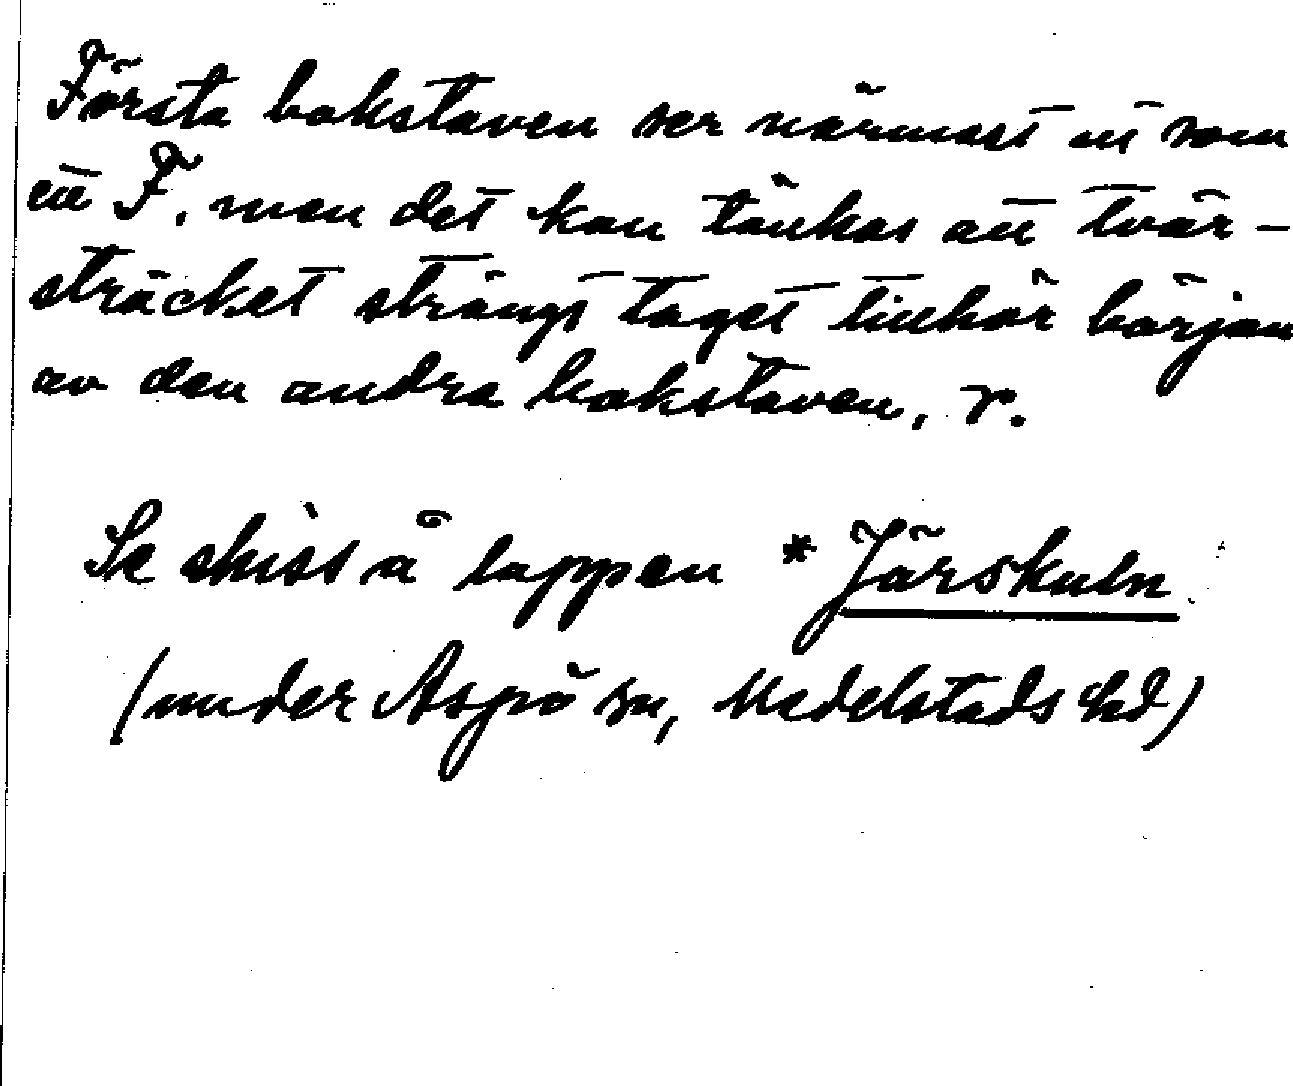 Första bokstaven ser närmast ut som
ett F, men det kan tänkas att tvär-
sträcket strängt taget tillhör början
av den andra bokstaven, r.
Se skiss å lappen * Järskuln
(under Aspö sn, Medelstads hd)